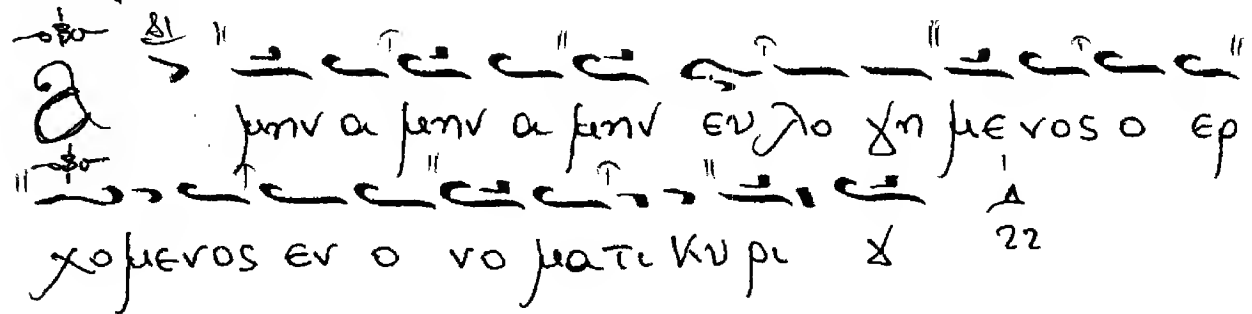 α μην α μην α μην ευ λο γη με νος ο ερ
χο με νος εν ο νο μα τι Κυ ρι ȣ